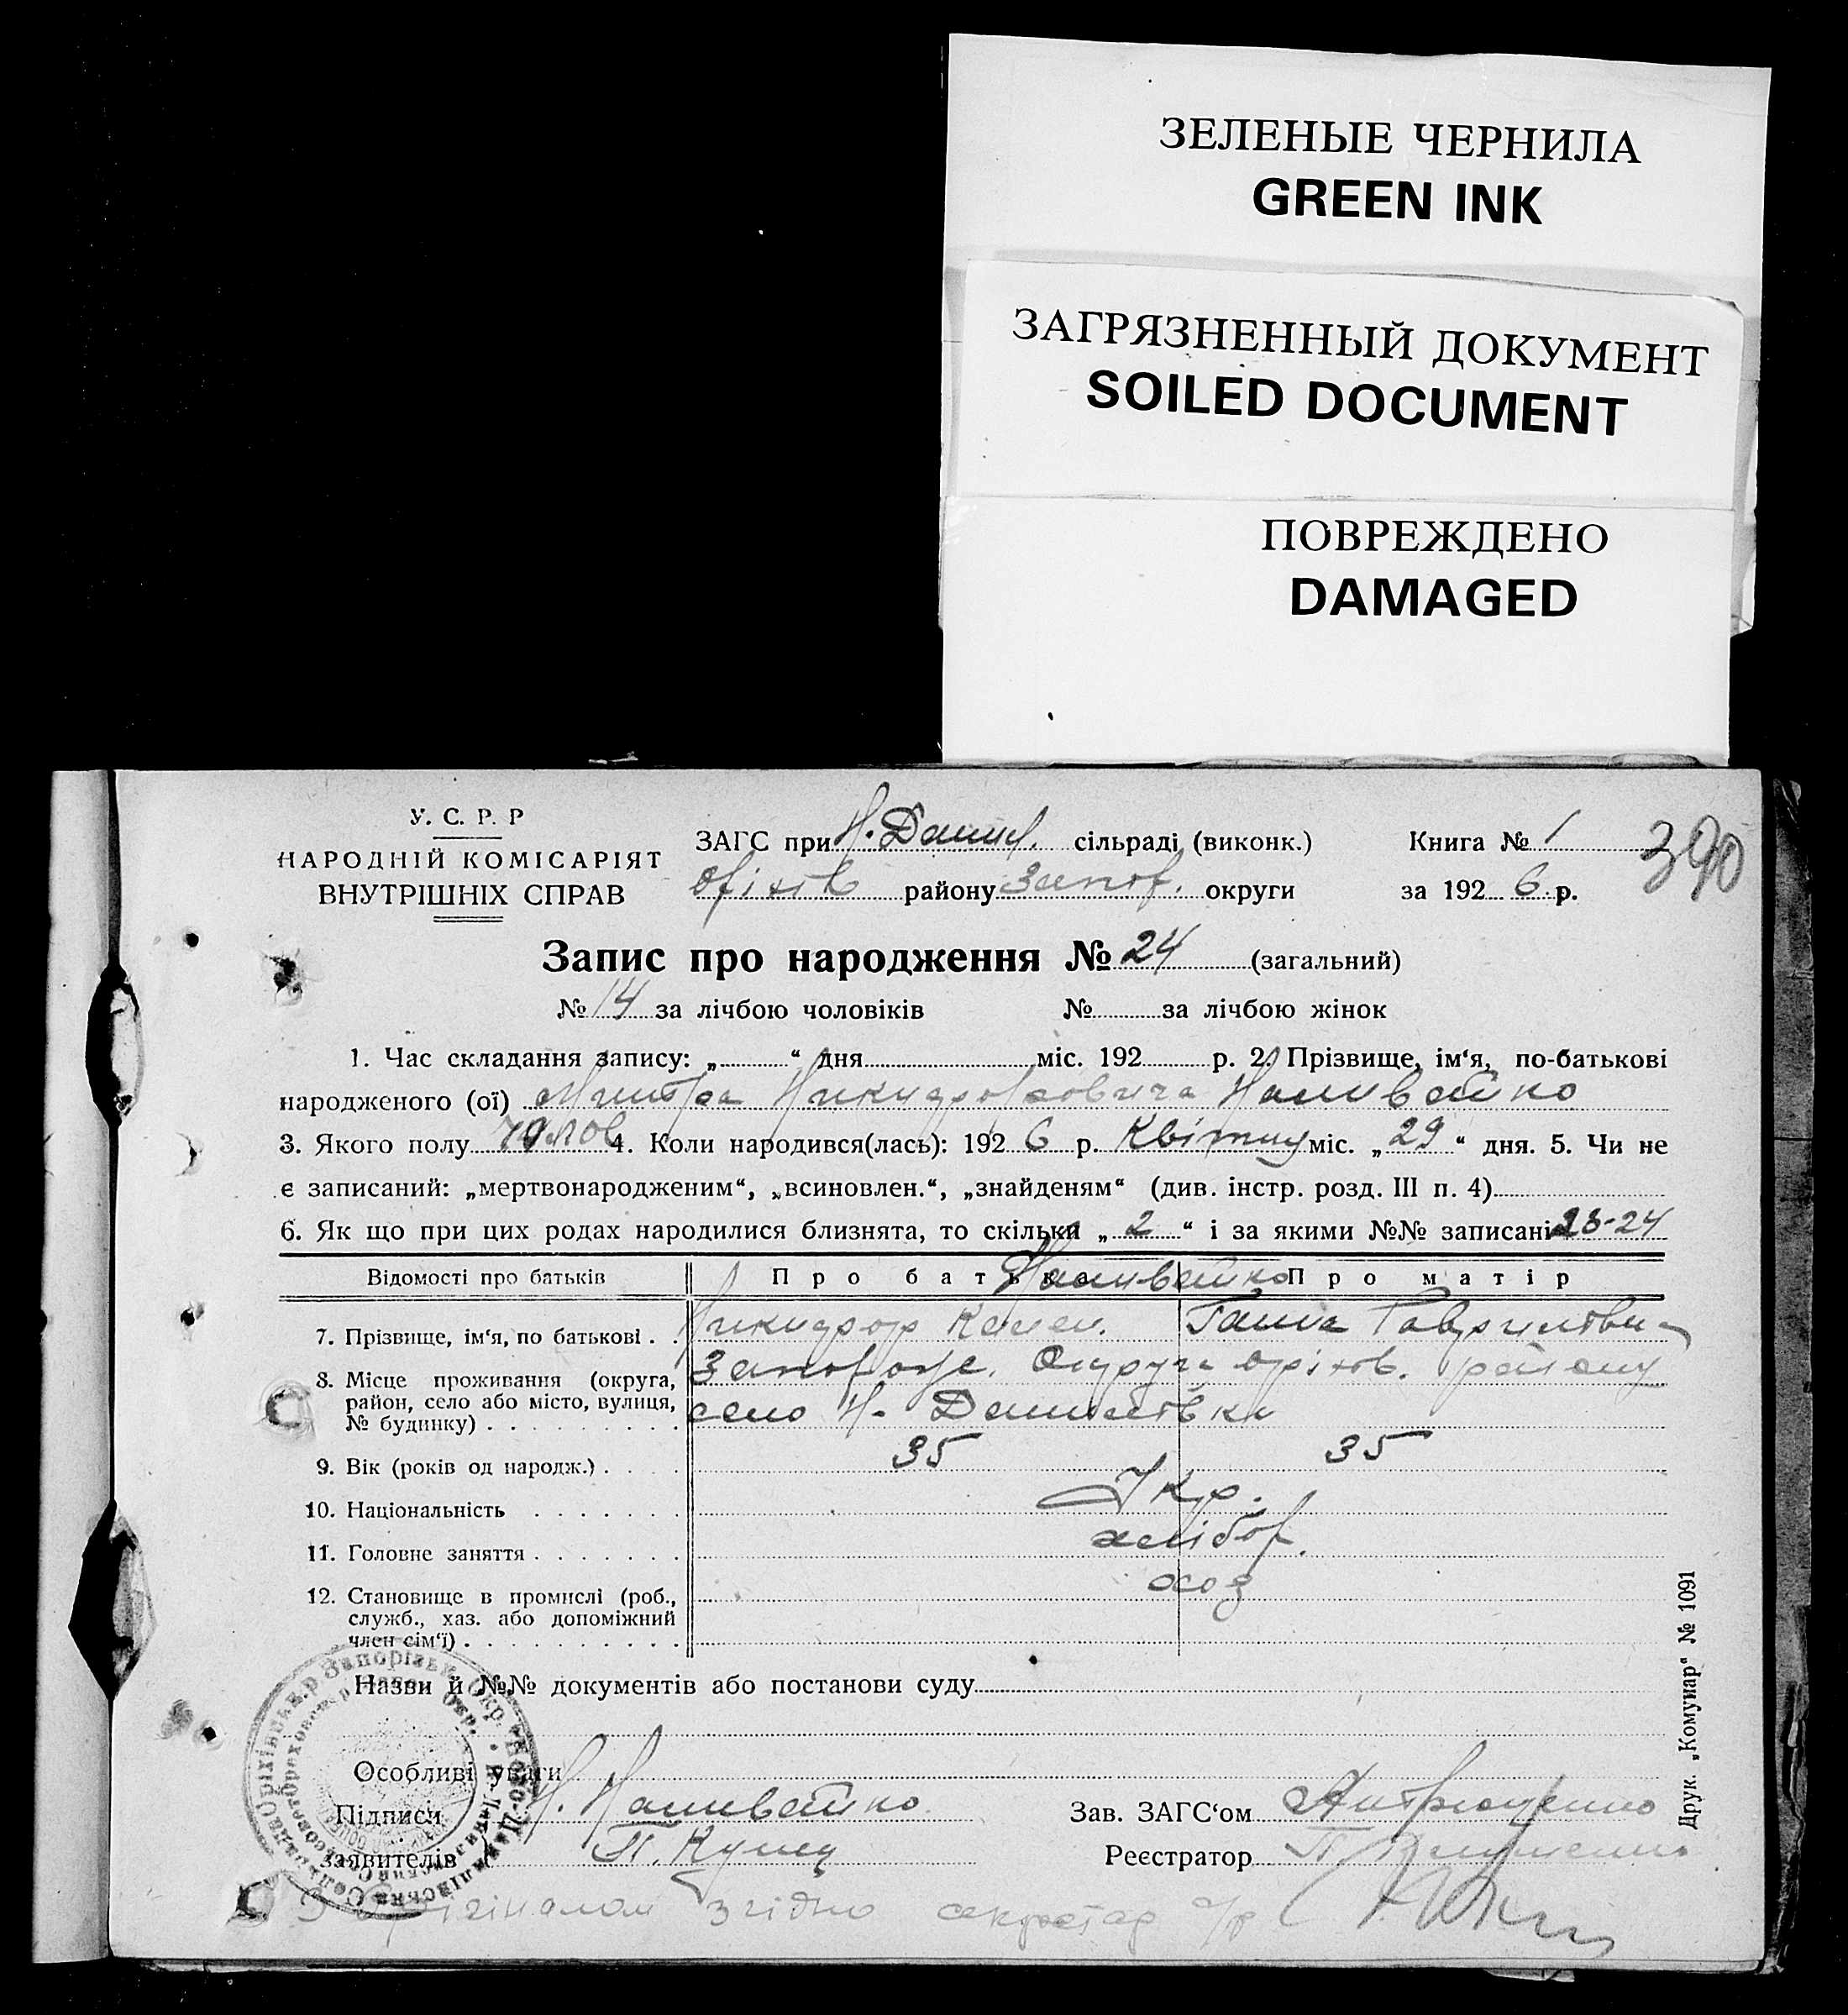 ЗЕЛЕНЫЕ ЧЕРНИЛА
GREEN INK
ЗАГРЯЗНЕННЫЙ ДОКУМЕНТ
SOILED DOCUMENT
ПОВРЕЖДЕНО
DAMAGED
У. С. Р. Р
НАРОДНІЙ КОМІСАРІЯТ
ВНУТРІШНІХ СПРАВ
ЗАГС при Н. Данил. сільраді (виконк.)
Оріхів району Запор. округи
Книга № 1
за 192 6 р.
390
Запис про народження № 24 (загальний)
№ 14 за лічбою чоловіків № за лічбою жінок
1. Час складання запису: „ “ дня міс. 192 р. 2. Прізвище, ім‘я, по-батькові
народженого (ої) Никифоровича Наливайко
3. Якого полу чолов 4. Коли народився(лась): 192 6 р. Квітня міс. „ 29 “ дня. 5. Чи не
є записаний: „мертвонародженим“, „всиновлен.“, „знайденям“ (див. інстр. розд. III п. 4)
6. Як що при цих родах народилися близнята, то скільки „ 2 “ і за якими №№ записані 23-24
Відомості про батьків Про батька Про матір
Наливайко
7. Прізвище, ім‘я, по батькові . Никифор Ганна Гаврилівна
8. Місце проживання (округа, район, село або місто, вулиця, № будинку) Запоріж. Округи Оріхів. району
село Н. Данилівка
9. Вік (років од народж.) 35 35
10. Національність Укр.
11. Головне заняття хлібор.
12. Становище в промислі (роб., служб., хаз. або допоміжний член сім‘ї)
Назви й №№ документів або постанови суду
Особливі уваги
Підписи заявителів
Н. Наливайко
П. Куниц
Зав. ЗАГС‘ом
Реєстратор П.
З Оригіналом згідно секретар с/р
Друк. „Комунар“ № 1091